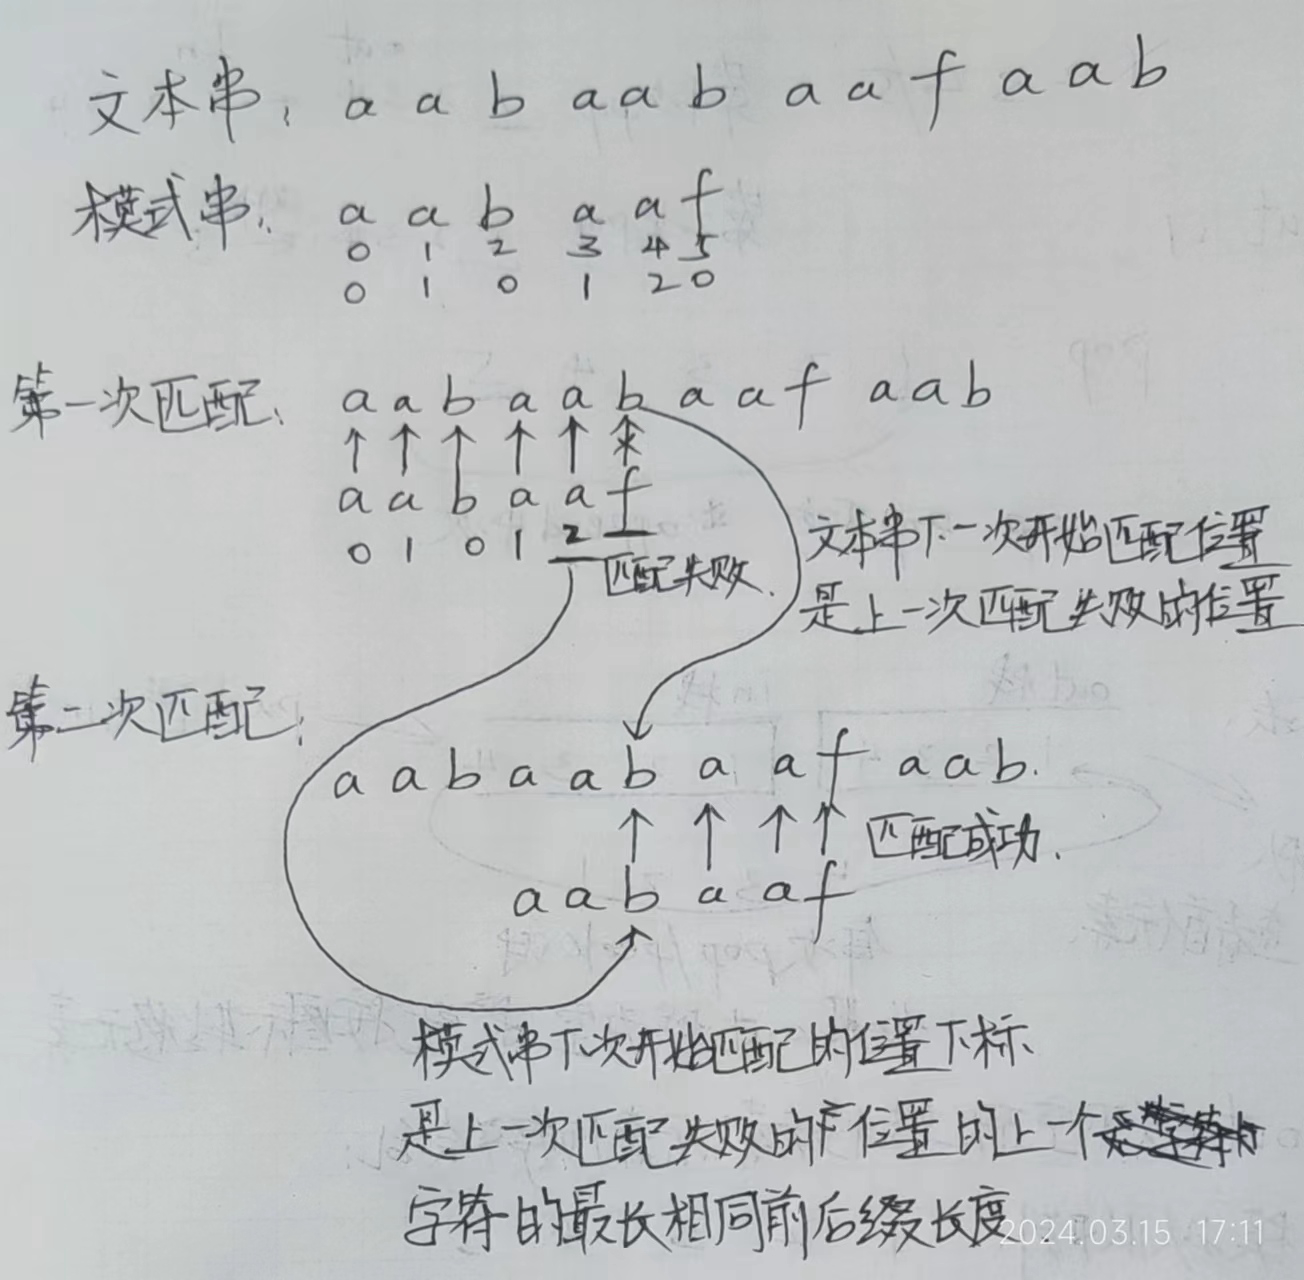 文本串: a a b a a b a a f a a b
模式串: a a b a a f
0 1 2 3 4 5
0 1 0 1 2 0
第一次匹配: a a b a a b a a f a a b
a a b a a f
0 1 0 1 2
匹配失败.
文本串下一次开始匹配位置
是上一次匹配失败的位置
第二次匹配:
a a b a a b a a f a a b.
匹配成功.
a a b a a f
模式串下次开始匹配的位置下标
是上一次匹配失败的位置的上一个
字符的最长相同前后缀长度
2024.03.15 17:11